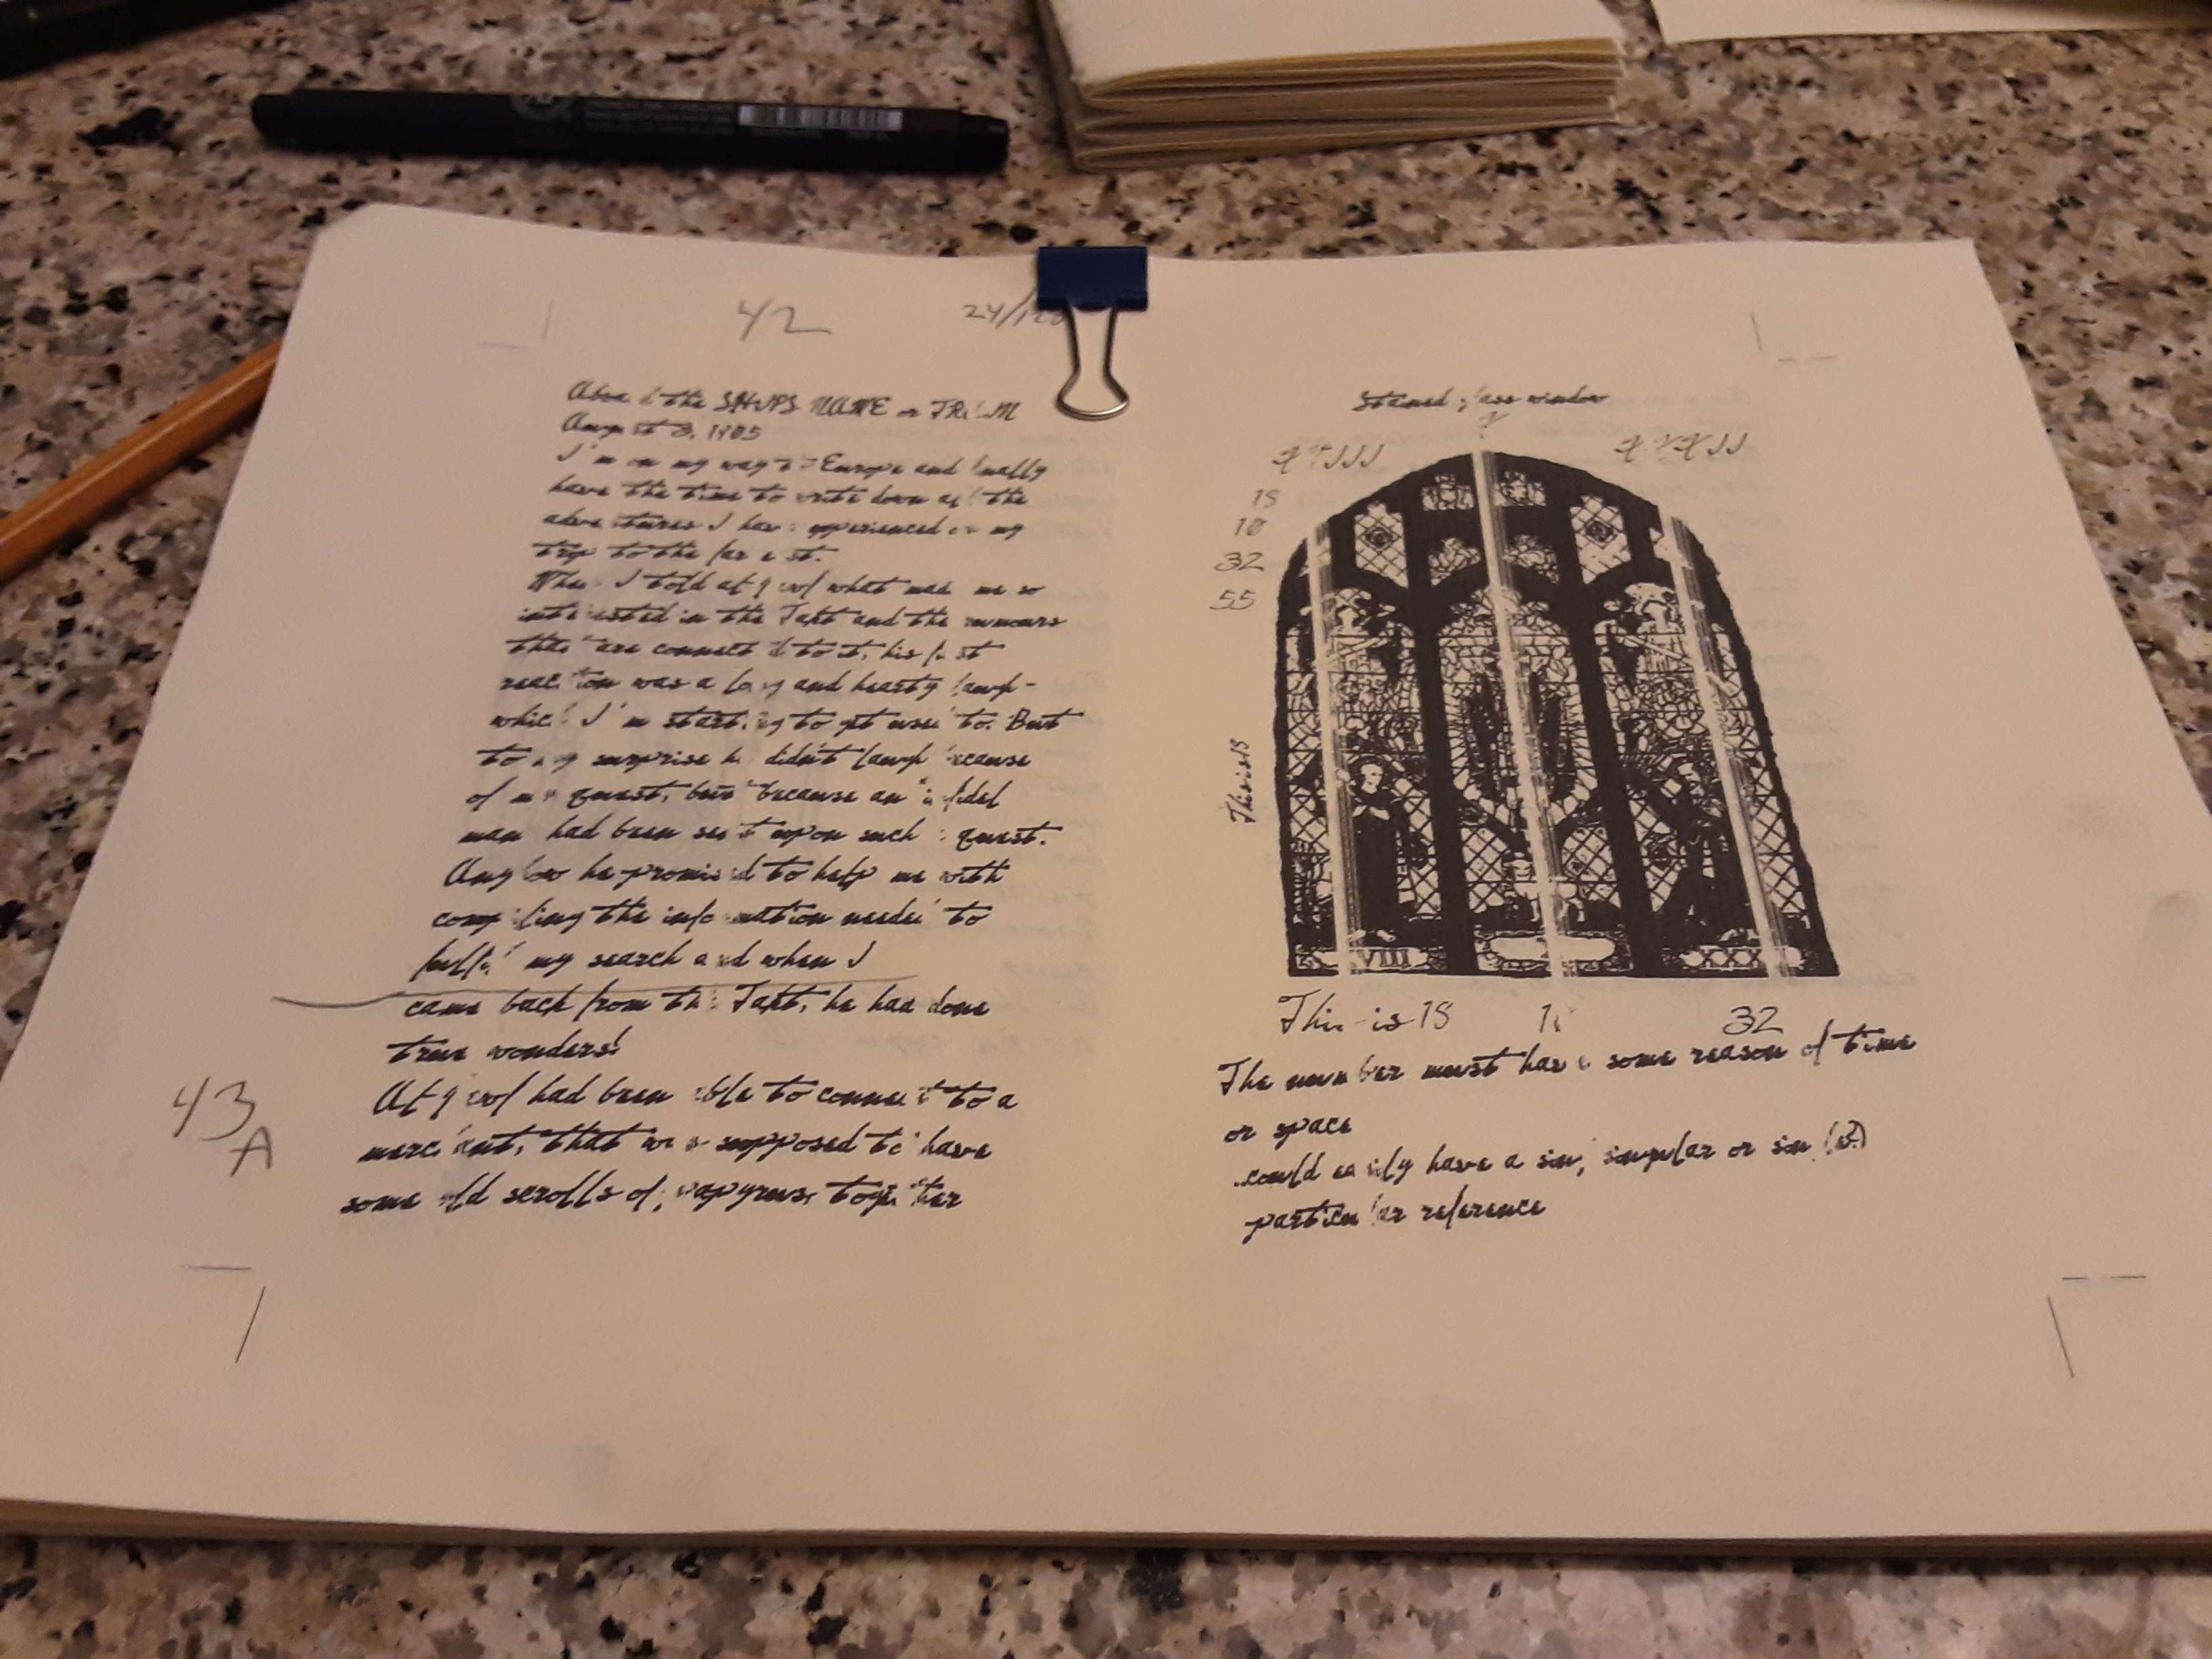 42
24/12
the SHIPS NAME or
August 3, 1905
I'm on my way to Europe and finally
have the time to write down all the
adventures I have experienced on my
trip to the far east.
When I told what made me so
interested in the and the rumours
that are connected to it, his first
reaction was a long and hearty laugh -
which I'm starting to get used to. But
to my surprise he didn't laugh because
of my quest, but because an infidel
man had been sent upon such a quest.
Anyhow he promised to help me with
compiling the information needed to
fulfil my search and when I
came back from the he had done
true wonders!
had been able to connect to a
merchant, that was supposed to have
some old scrolls of papyrus, together
43
A
Stained glass window
X
XVIII
XXXII
18
10
32
55
This is
VIII
This is 18 10 32
The number must have some reason of time
or space
could easily have a sin, singular or sin (?)
particular reference